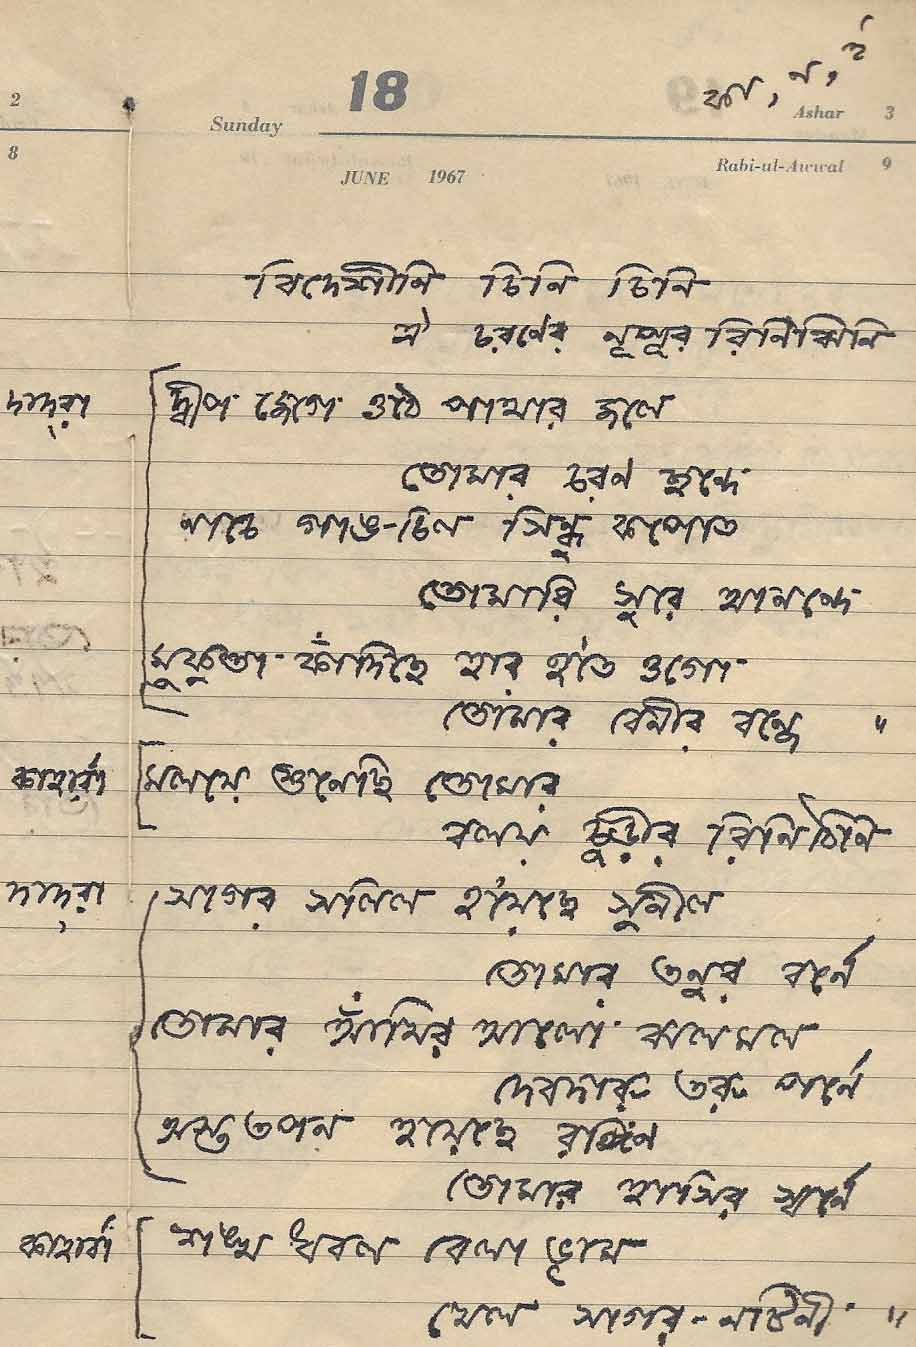 18
2 Sunday Ashar 3
8 JUNE 1967 Rabi-ul-Awwal 9
কা, ন, ই
বিদেশীনি চিনি চিনি
ঐ চরণের নূপূর রিনিঝিনি
দাদ্‌রা দ্বীপ জেগে ওঠে পাথার জলে
তোমার চরণ ছন্দে
নাচে গাঙ-চিল সিন্ধু কপোত
তোমারি সুরে আনন্দে
মুকুতা কাঁদিছে হার হ'তে ওগো
তোমার বেনীর বন্ধে "
কাহার্বা মলয়ে শুনেছি তোমার
বলয় চুড়ীর রিনিঠিনি
দাদ্‌রা সাগর সলিল হ'য়েছে সুনীল
তোমার তনুর বর্নে
তোমার আঁখির আলো ঝলমল
দেবদারু তরু পর্নে
অস্ত তপন হ'য়েছে রঙ্গিন
তোমার হাসির স্বর্নে
কাহার্বা শঙ্খ ধবল বেলা ভূমে
খেল সাগর-নটিনী "